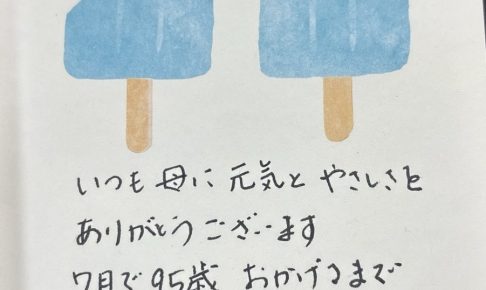 いつも母に元気とやさしさを
ありがとうございます
7月で95歳 おかげさまで